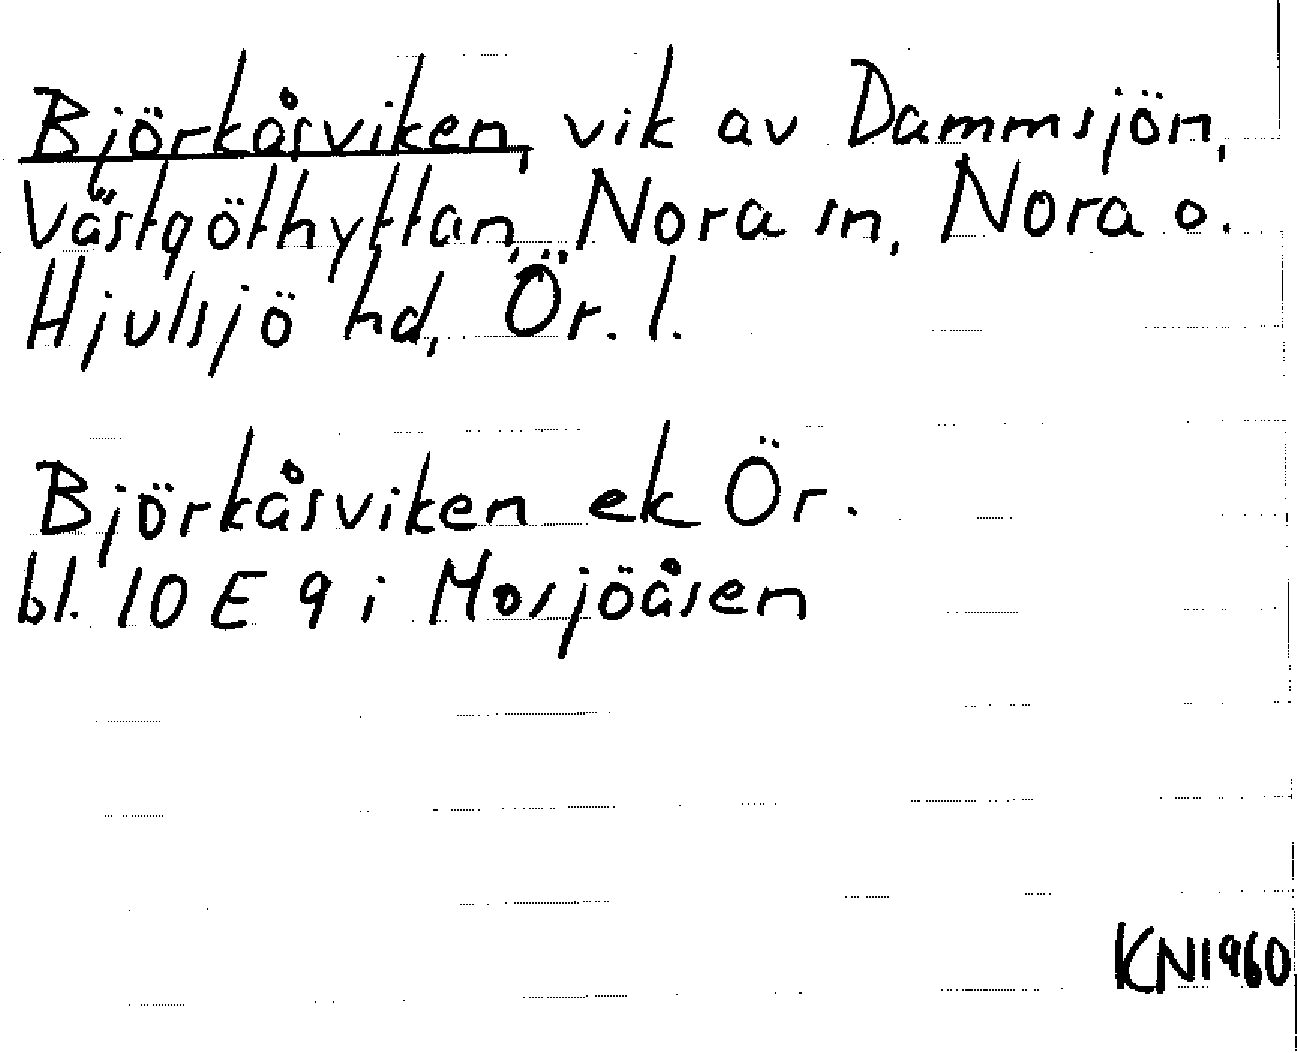 Björkåsviken, vik av Dammsjön,
Västgöthyttan, Nora sn, Nora o.
Hjulsjö hd, Ör. l.
Björkåsviken ek Ör.
bl. 10 E 9 i Mosjöåsen
KN1960